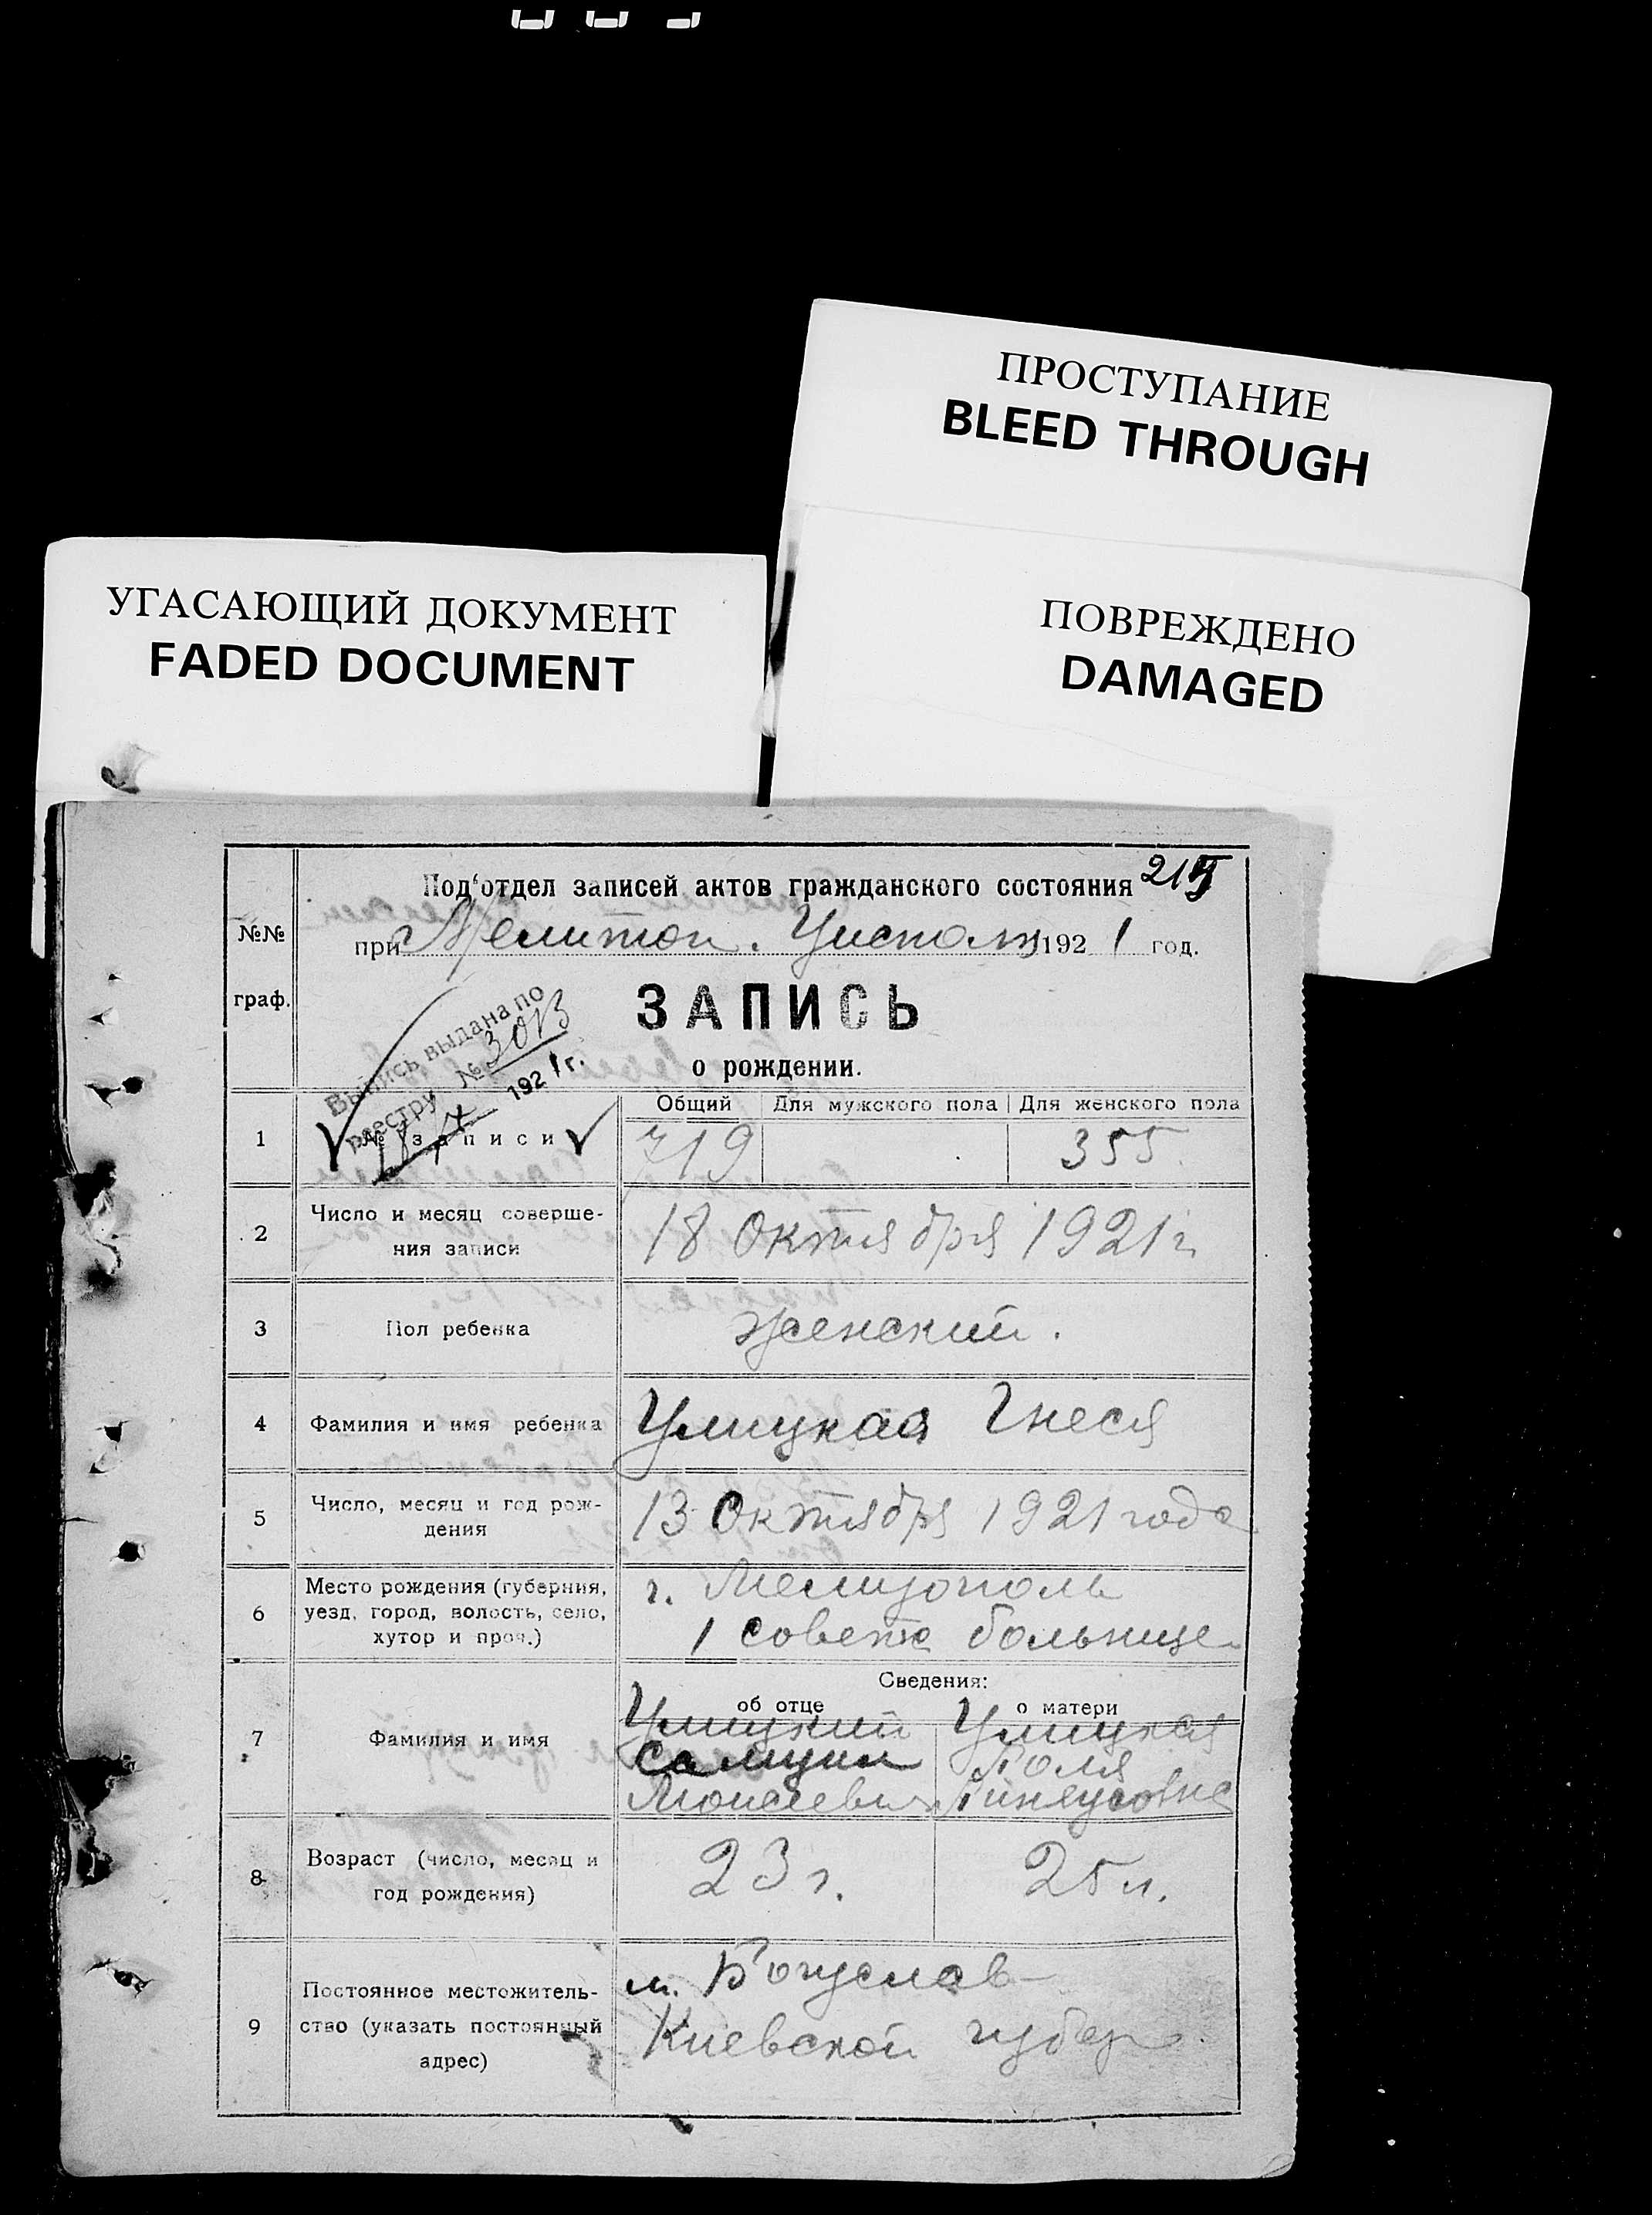 ПРОСТУПАНИЕ
BLEED THROUGH
УГАСАЮЩИЙ ДОКУМЕНТ
FADED DOCUMENT
ПОВРЕЖДЕНО
DAMAGED
215
№№
граф.
Под'отдел записей актов гражданского состояния
при Мелитоп. Уисполк 1921 год.
ЗАПИСЬ
о рождении.
Выпись выдана по
реестру № 3013
1921 г.
Общий Для мужского пола Для женского пола
1 № записи 719 355
2 Число и месяц соверше-
ния записи
18 Октября 1921 г
3 Пол ребенка женский.
4 Фамилия и имя ребенка Улицкая Гнеся
5 Число, месяц и год рож-
дения
13 Октября 1921 года
6 Место рождения (губерния,
уезд, город, волость, село,
хутор и проч.)
г. Мелитополь
1 совет больнице
Сведения:
об отце о матери
7 Фамилия и имя
Улицкий Улицкая
Самуил Поля
Моисеевич Пинхусовна
8 Возраст (число, месяц и
год рождения)
23 г. 25 л.
9 Постоянное местожитель-
ство (указать постоянный
адрес)
м. Богуслав
Киевской губер